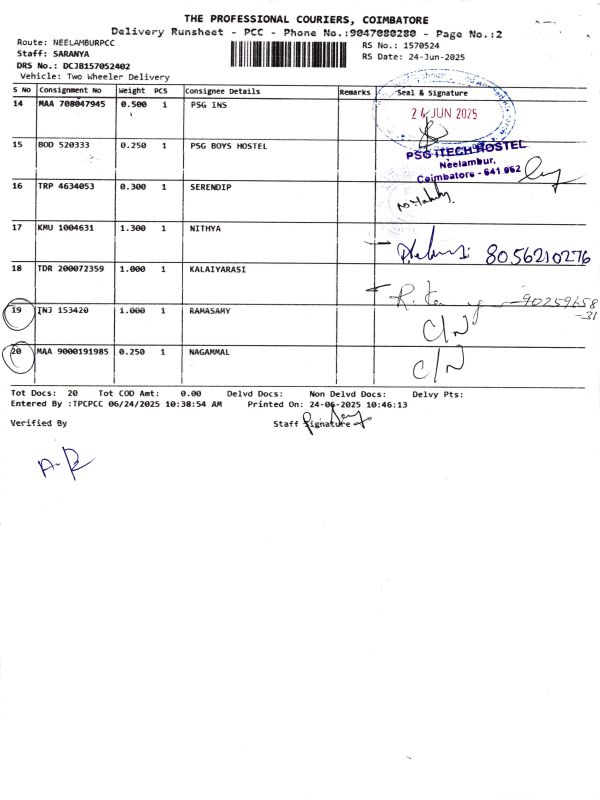 THE PROFESSIONAL COURIERS, COIMBATORE
Delivery Runsheet - PCC - Phone No.:9047080280 - Page No.:2
Route: NEELAMBURPCC
Staff: SARANYA
DRS No.: DCJB157052402
Vehicle: Two Wheeler Delivery
RS No.: 1570524
RS Date: 24-Jun-2025
S No Consignment No Weight PCS Consignee Details Remarks Seal & Signature
14 MAA 708047945 0.500 1 PSG INS
24 JUN 2025
15 BOD 520333 0.250 1 PSG BOYS HOSTEL
PSG ITECH HOSTEL
Neelambur,
Coimbatore - 641 062
16 TRP 4634053 0.300 1 SERENDIP
17 KMU 1004631 1.300 1 NITHYA
8056210276
18 TDR 200072359 1.000 1 KALAIYARASI
90259658
-31
19 INJ 153420 1.000 1 RAMASAMY
C/N
20 MAA 9000191985 0.250 1 NAGAMMAL
C/N
Tot Docs: 20 Tot COD Amt: 0.00 Delvd Docs: Non Delvd Docs: Delvy Pts:
Entered By :TPCPCC 06/24/2025 10:38:54 AM Printed On: 24-06-2025 10:46:13
Verified By Staff Signature